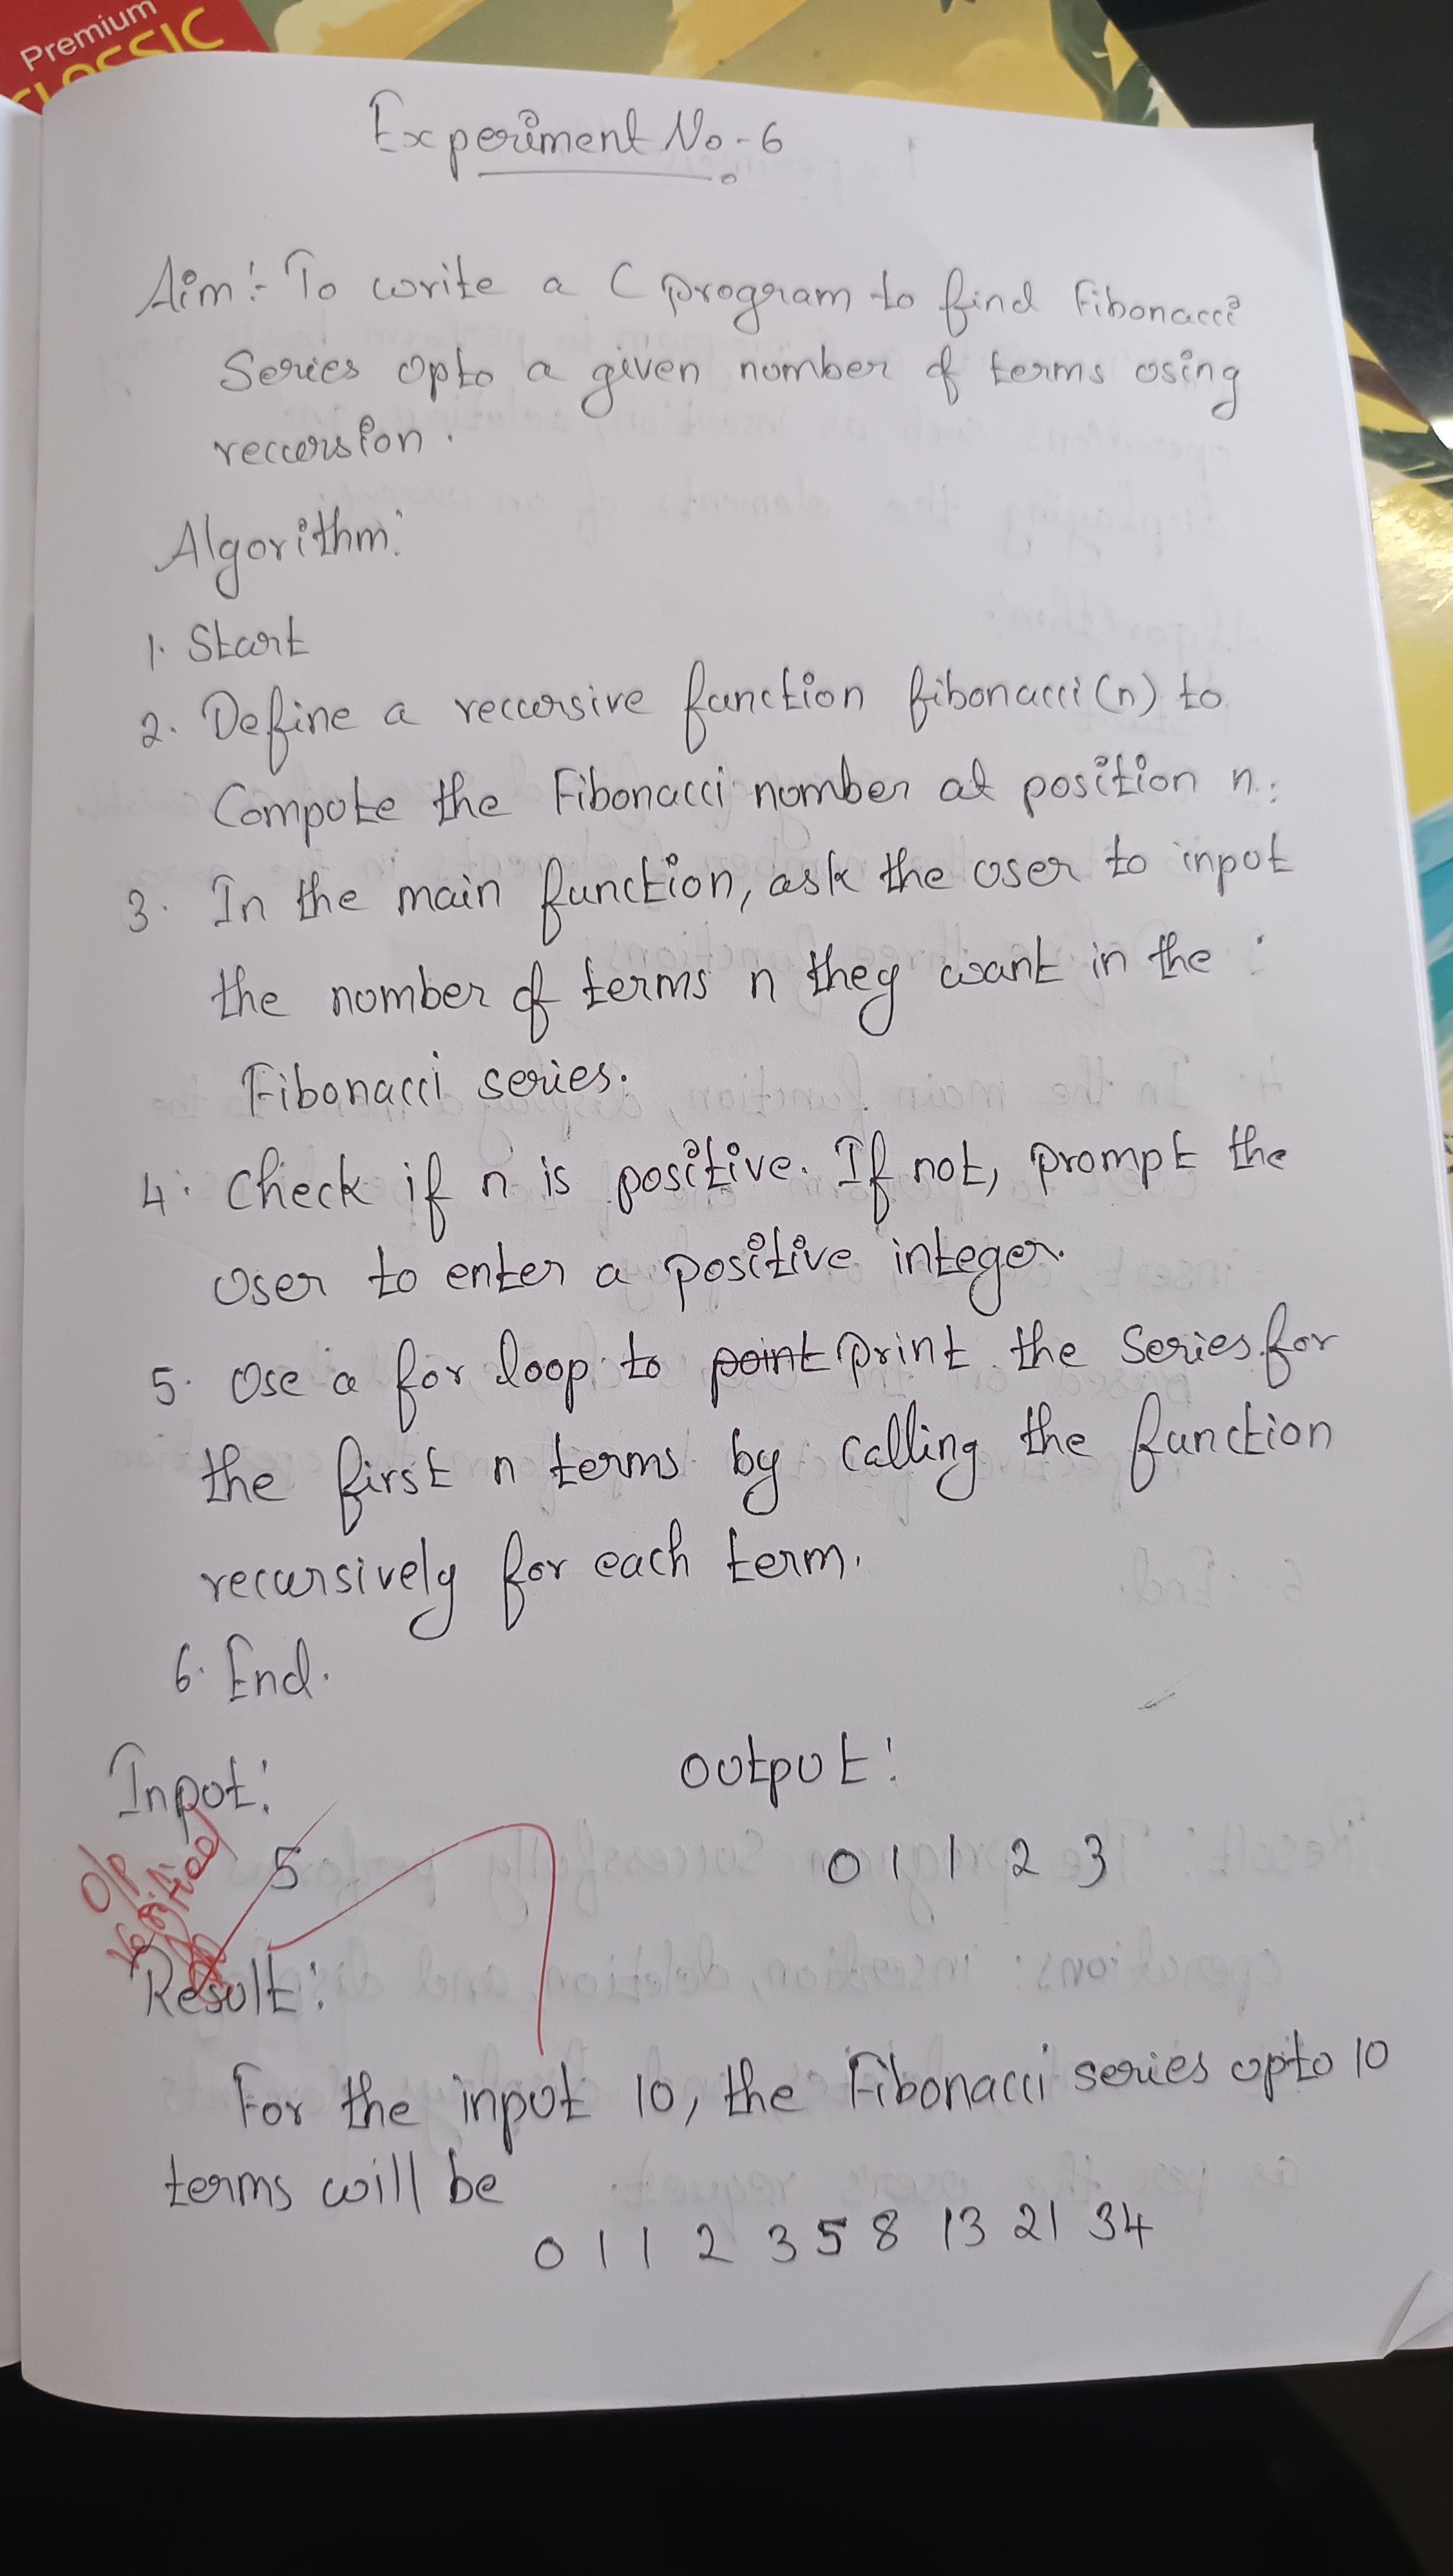 Premium
CLASSIC
Experiment No-6
Aim:- To write a C program to find Fibonacci
Series upto a given number of terms using
reccursion.
Algorithm:
1. Start
2. Define a reccursive function fibonacci(n) to
Compute the Fibonacci number at position n.
3. In the main function, ask the user to input
the number of terms n they want in the
Fibonacci series.
4. Check if n is positive. If not, prompt the
user to enter a positive integer.
5. Use a for loop to point print the Series for
the first n terms by calling the function
recursively for each term.
6. End.
Input: Output:
5 0 1 1 2 3
O/P
Verified
Result:
For the input 10, the Fibonacci series upto 10
terms will be
0 1 1 2 3 5 8 13 21 34